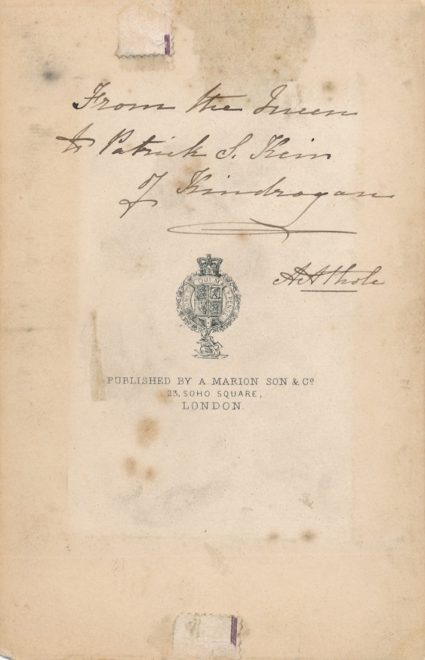 From the Queen
to Patrick S. Keir
of Kindrogan
A Athole
PUBLISHED BY A. MARION SON & Co
23, SOHO SQUARE,
LONDON.